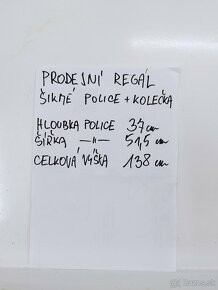 PRODEJNÍ REGÁL
ŠIKMÉ POLICE + KOLEČKA
HLOUBKA POLICE 37 cm
ŠÍŘKA —〃— 51,5 cm
CELKOVÁ VÝŠKA 138 cm
Bazos.sk